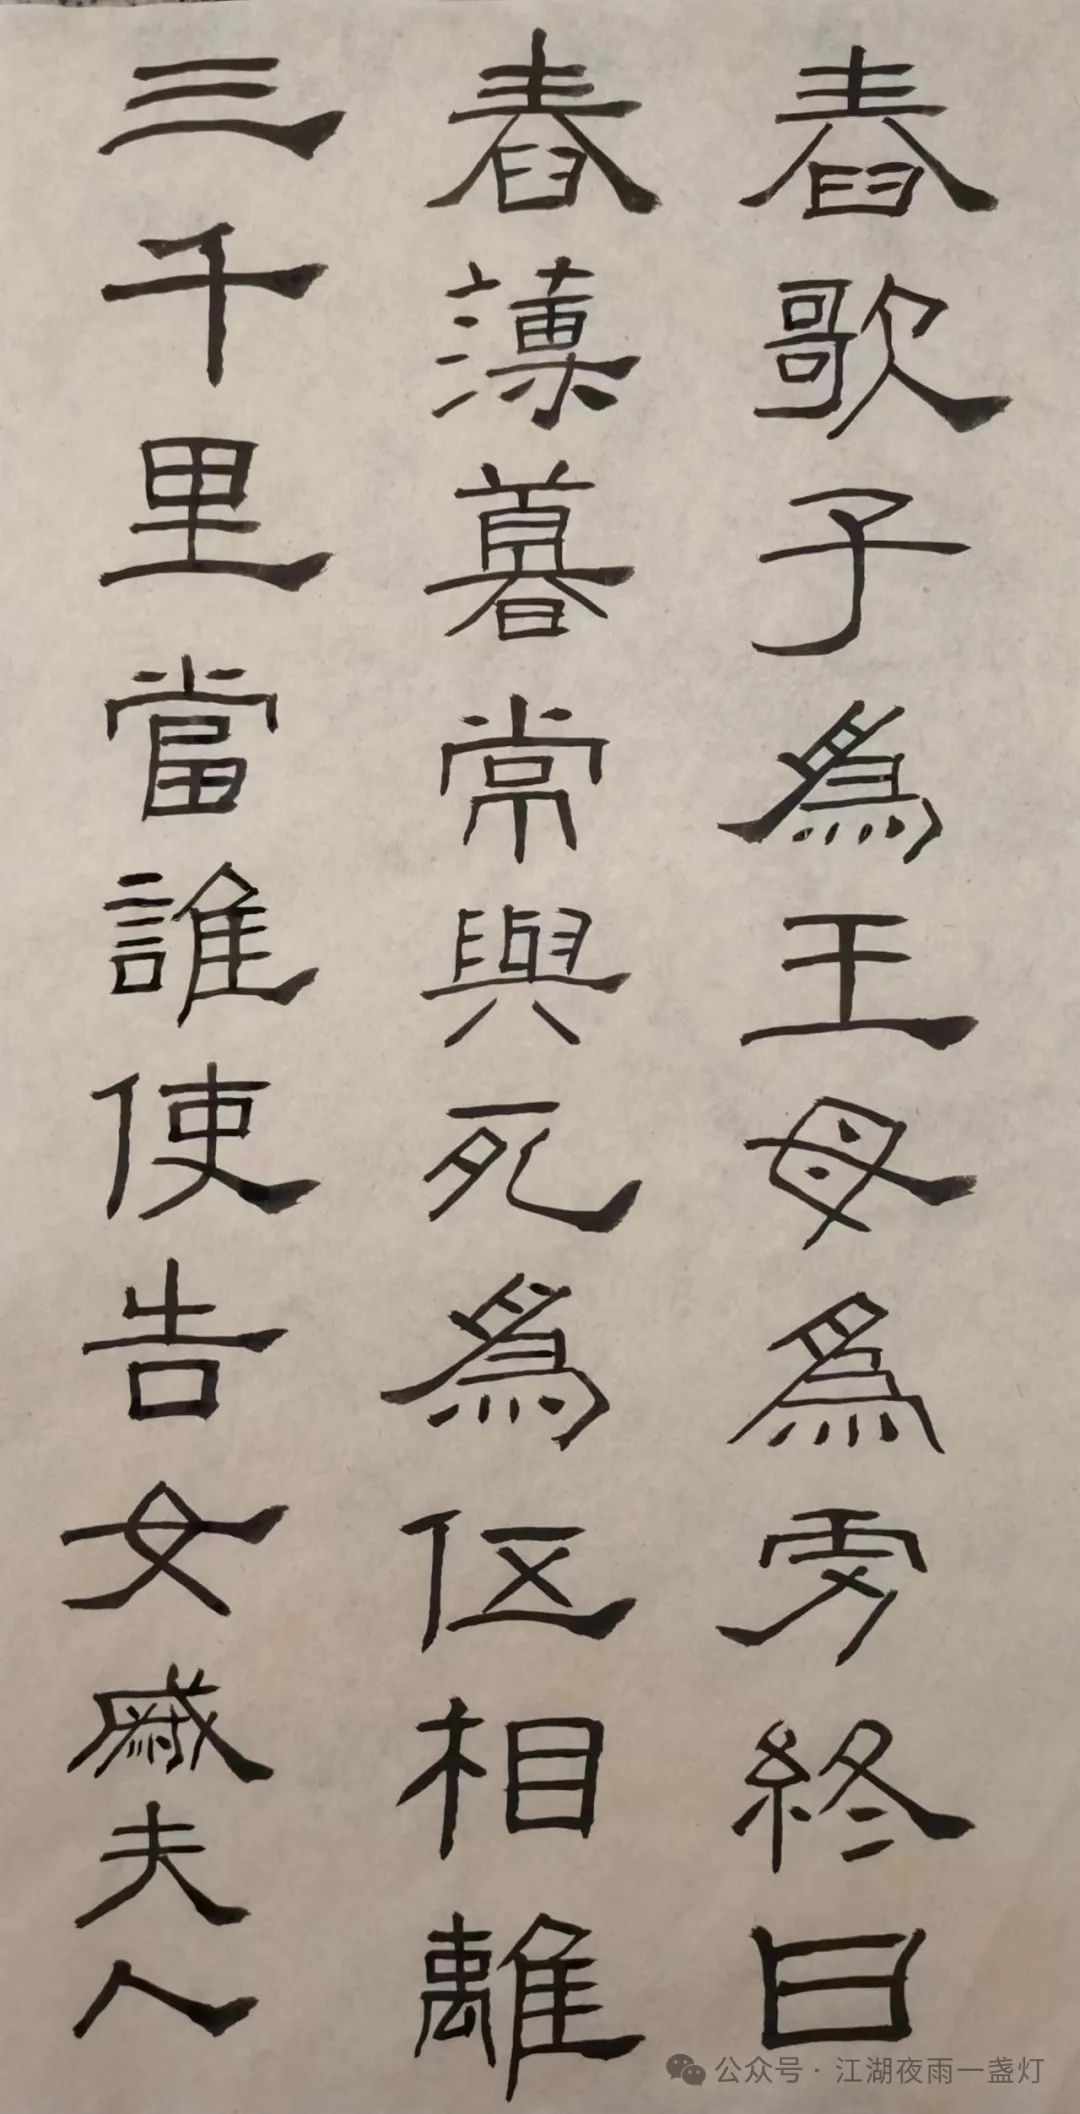 舂歌子爲王母爲虜終日
舂薄暮常與死爲伍相離
三千里當誰使告女戚夫人
公众号 · 江湖夜雨一盏灯